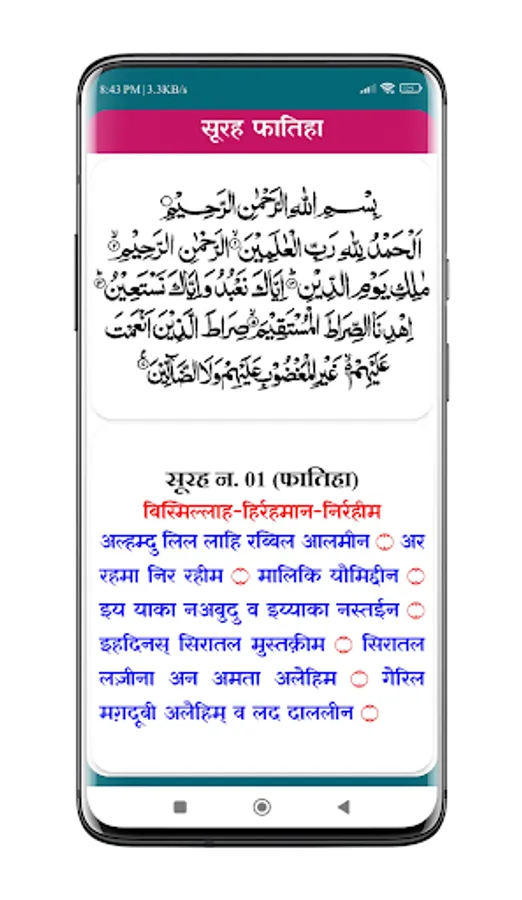 8:43 PM | 3.3KB/s
सूरह फातिहा
بِسْمِ اللهِ الرَّحْمٰنِ الرَّحِيْمِ
اَلْحَمْدُ لِلّٰهِ رَبِّ الْعٰلَمِيْنَ ۙ الرَّحْمٰنِ الرَّحِيْمِ ۙ
مٰلِكِ يَوْمِ الدِّيْنِ ؕ اِيَّاكَ نَعْبُدُ وَاِيَّاكَ نَسْتَعِيْنُ ؕ
اِهْدِنَا الصِّرَاطَ الْمُسْتَقِيْمَ ۙ صِرَاطَ الَّذِيْنَ اَنْعَمْتَ
عَلَيْهِمْ ۙ غَيْرِ الْمَغْضُوْبِ عَلَيْهِمْ وَلَا الضَّآلِّيْنَ
सूरह न. 01 (फातिहा)
बिस्मिल्लाह-हिर्रहमान-निर्रहीम
अल्हम्दु लिल लाहि रब्बिल आलमीन ۝ अर
रहमा निर रहीम ۝ मालिकि यौमिद्दीन ۝
इय याका नअबुदु व इय्याका नस्तईन ۝
इहदिनस् सिरातल मुस्तक़ीम ۝ सिरातल
लज़ीना अन अमता अलेहिम ۝ गेरिल
मग़दूबी अलैहिम् व लद दाललीन ۝